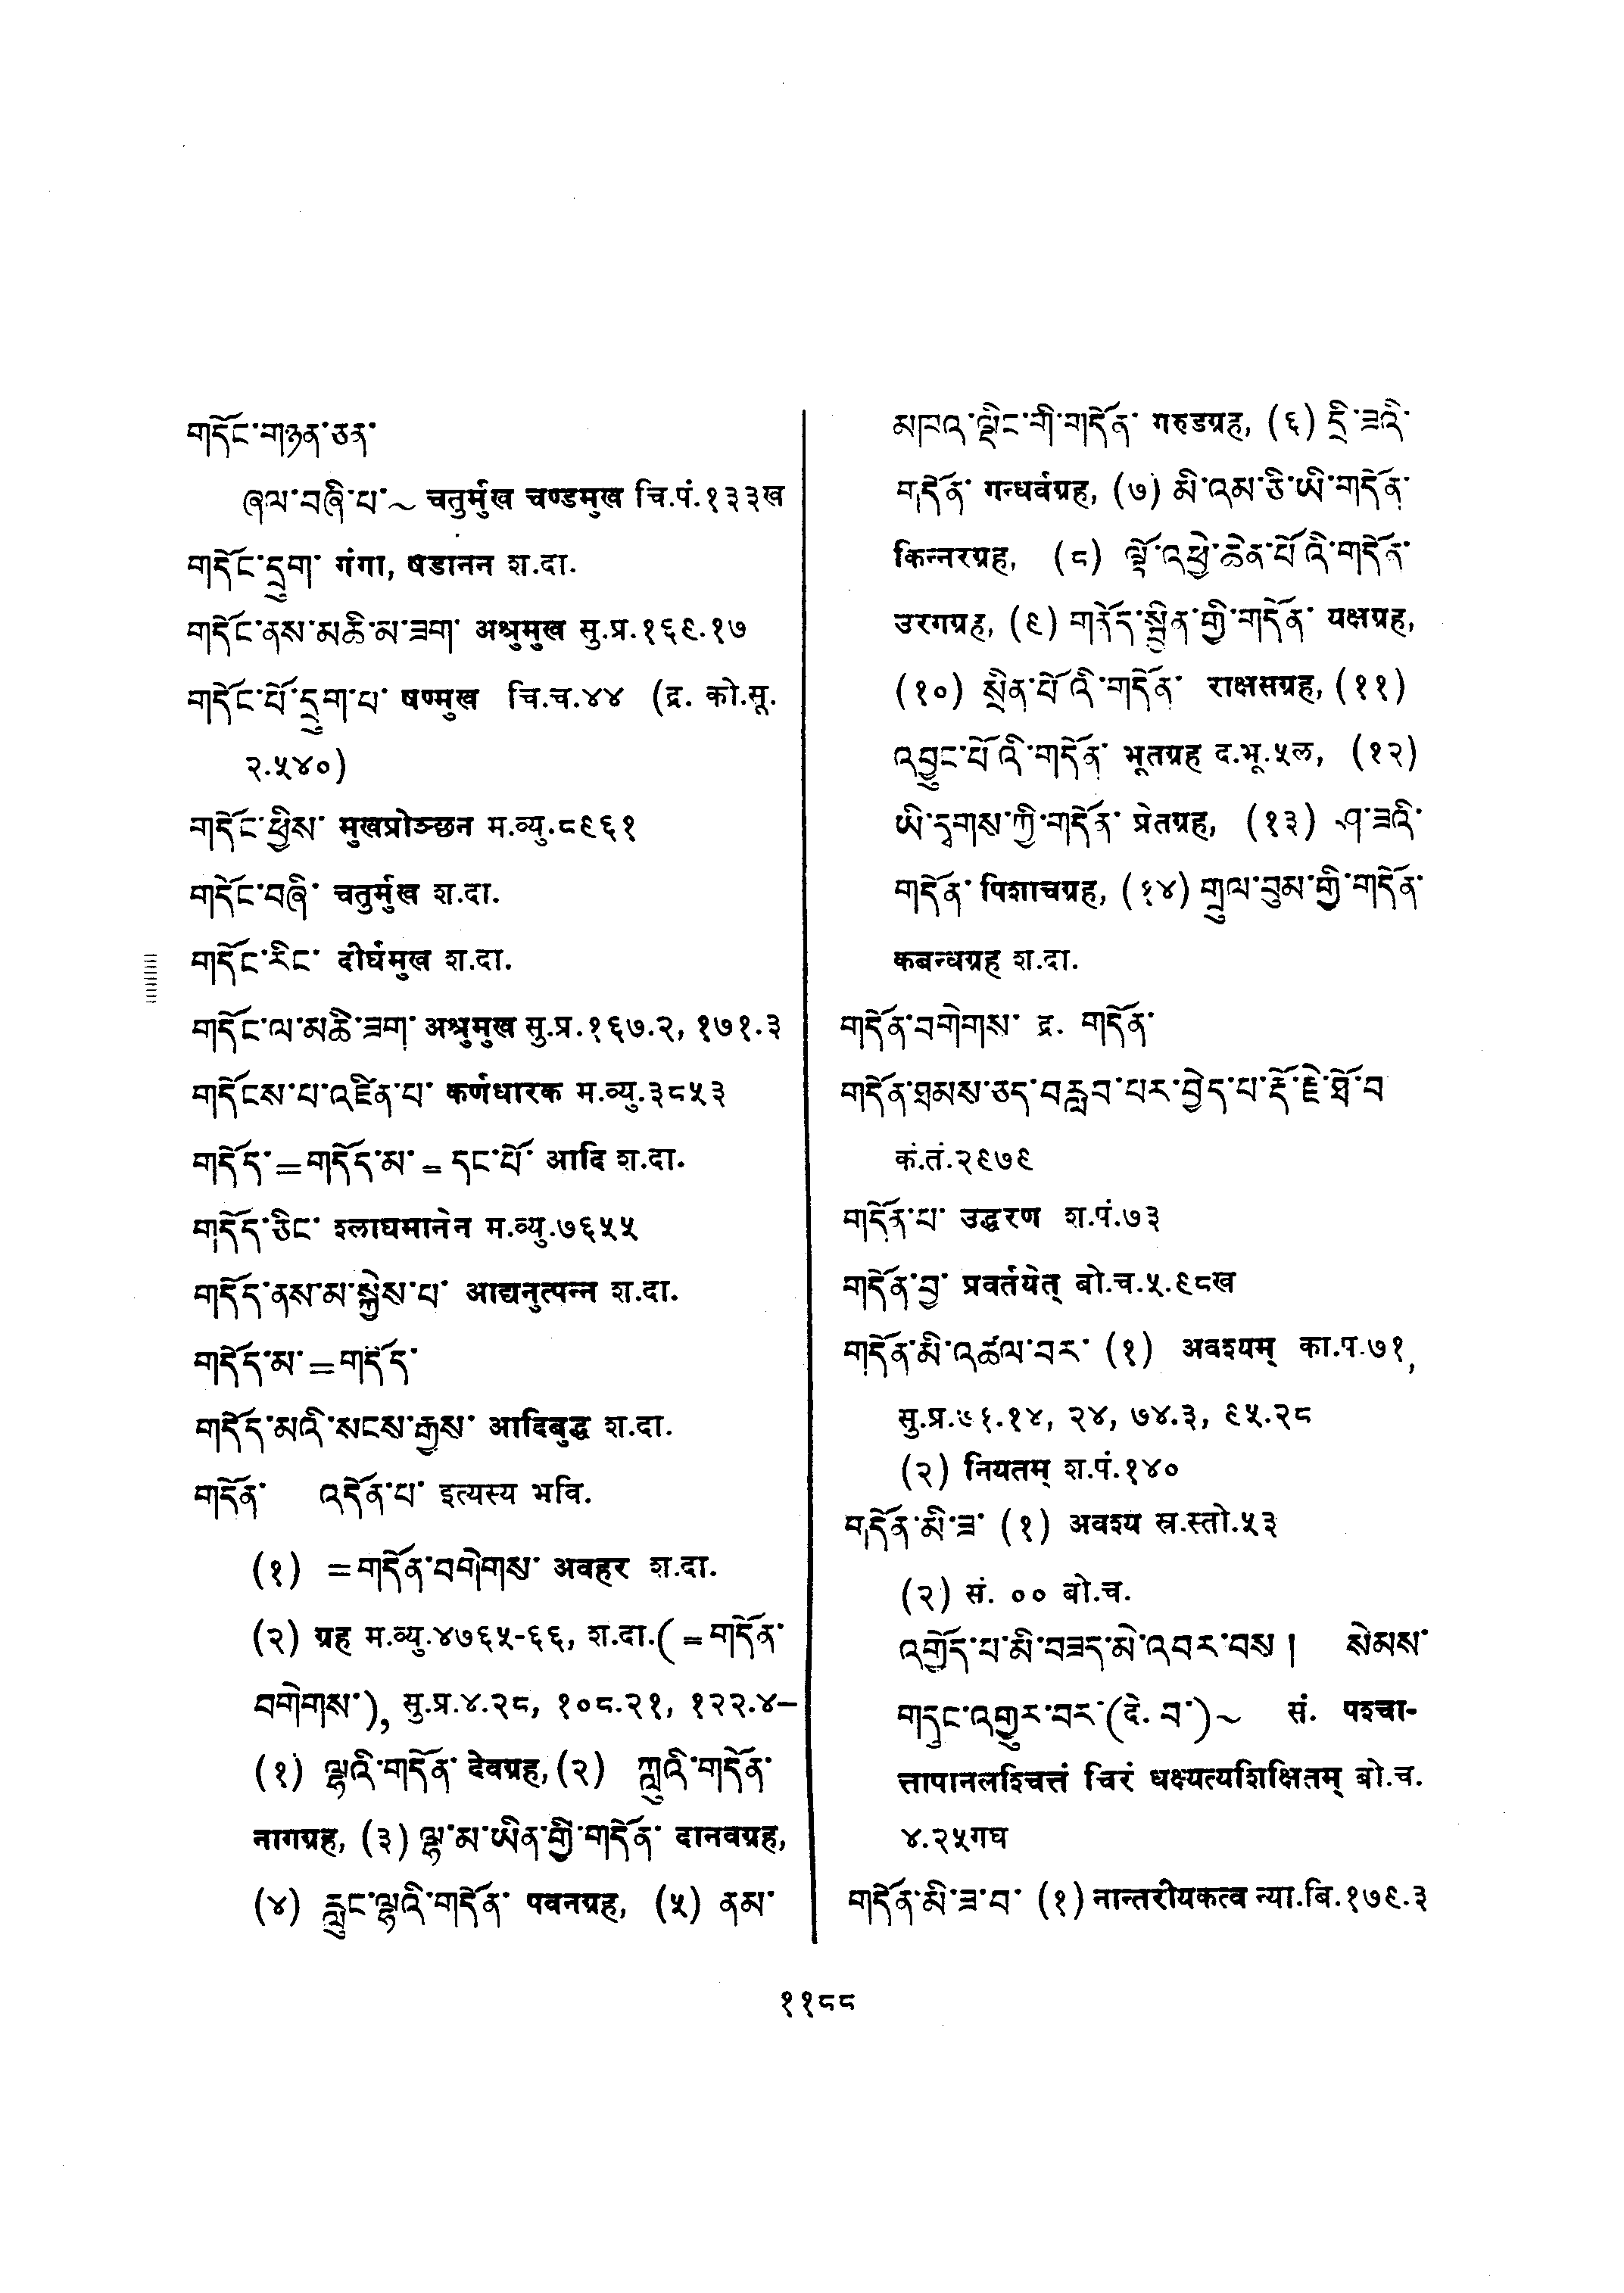 གདོང་གཉན་ཅན་
ཞལ་བཞི་པ་~ चतुर्मुख चण्डमुख चि.पं.१३३ख
གདོང་དྲུག་ गंगा, षडानन श.दा.
གདོང་ནས་མཆི་མ་ཟག་ अश्रुमुख सु.प्र.१६९.१७
གདོང་པོ་དྲུག་པ་ षण्मुख चि.च.४४ (द्र. को.सू.
२.५४०)
གདོང་ཕྱིས་ मुखप्रोञ्छन म.व्यु.८९६१
གདོང་བཞི་ चतुर्मुख श.दा.
གདོང་རིང་ दीर्घमुख श.दा.
གདོང་ལ་མཆི་ཟག་ अश्रुमुख सु.प्र.१६७.२, १७१.३
གདོངས་པ་འཛིན་པ་ कर्णधारक म.व्यु.३८५३
གདོད་=གདོད་མ་=དང་པོ་ आदि श.दा.
གདོད་ཅིང་ श्लाघमानेन म.व्यु.७६५५
གདོད་ནས་མ་སྐྱེས་པ་ आद्यनुत्पन्न श.दा.
གདོད་མ་=གདོད་
གདོད་མའི་སངས་རྒྱས་ आदिबुद्ध श.दा.
གདོན་ འདོན་པ་ इत्यस्य भवि.
(१) =གདོན་བགེགས་ अवहर श.दा.
(२) ग्रह म.व्यु.४७६५-६६, श.दा.(=གདོན་
བགེགས་), सु.प्र.४.२८, १०८.२१, १२२.४–
(१) ལྷའི་གདོན་ देवग्रह, (२) ཀླུའི་གདོན་
नागग्रह, (३) ལྷ་མ་ཡིན་གྱི་གདོན་ दानवग्रह,
(४) རླུང་ལྷའི་གདོན་ पवनग्रह, (५) ནམ་
མཁའ་ལྡིང་གི་གདོན་ गरुडग्रह, (६) དྲི་ཟའི་
གདོན་ गन्धर्वग्रह, (७) མི་འམ་ཅི་ཡི་གདོན་
किन्नरग्रह, (८) ལྟོ་འཕྱེ་ཆེན་པོའི་གདོན་
उरगग्रह, (९) གནོད་སྦྱིན་གྱི་གདོན་ यक्षग्रह,
(१०) སྲིན་པོའི་གདོན་ राक्षसग्रह, (११)
འབྱུང་པོའི་གདོན་ भूतग्रह द.भू.५ल, (१२)
ཡི་དྭགས་ཀྱི་གདོན་ प्रेतग्रह, (१३) ཤ་ཟའི་
གདོན་ पिशाचग्रह, (१४) གྲུལ་བུམ་གྱི་གདོན་
कबन्धग्रह श.दा.
གདོན་བགེགས་ द्र. གདོན་
གདོན་ཐམས་ཅད་བརླབ་པར་བྱེད་པ་རྡོ་རྗེ་ཐོ་བ
कं.तं.२९७९
གདོན་པ་ उद्धरण श.पं.७३
གདོན་བྱ་ प्रवर्तयेत् बो.च.५.९८ख
གདོན་མི་འཚལ་བར་ (१) अवश्यम् का.प.७१,
सु.प्र.७१.१४, २४, ७४.३, ९५.२८
(२) नियतम् श.पं.१४०
གདོན་མི་ཟ་ (१) अवश्य स्र.स्तो.५३
(२) सं. ०० बो.च.
འགྱོད་པ་མི་བཟད་མེ་འབར་བས། སེམས་
གདུང་འགྱུར་བར་(དེ.བ་)~ सं. पश्चा-
त्तापानलश्चित्तं चिरं धक्ष्यत्यशिक्षितम् बो.च.
४.२५गघ
གདོན་མི་ཟ་བ་ (१) नान्तरीयकत्व न्या.बि.१७९.३
११८८